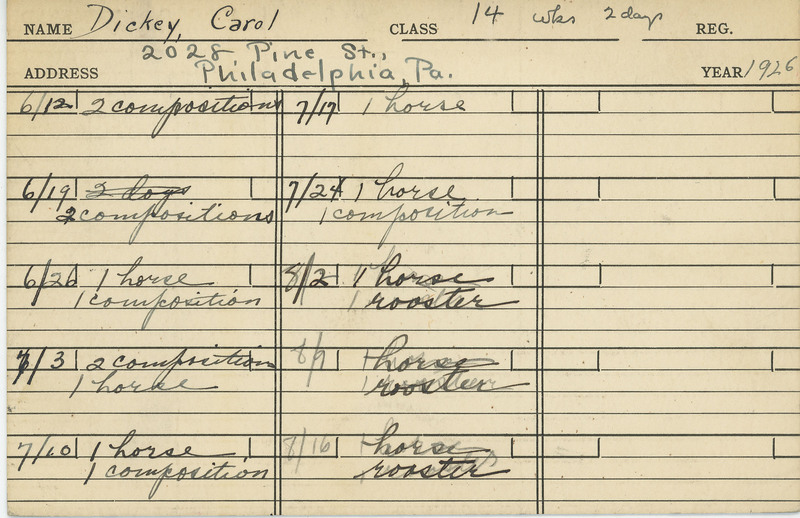 NAME Dickey, Carol CLASS 14 wks 2 days REG.
ADDRESS 2028 Pine St.,
Philadelphia, Pa. YEAR 1926
6/12 2 compositions
6/19 2 dogs
2 compositions
6/26 1 horse
1 composition
7/3 2 composition
1 horse
7/10 1 horse
1 composition
7/17 1 horse
7/24 1 horse
1 composition
8/2 1 horse
1 rooster
8/9 1 horse
1 rooster
8/16 1 horse
rooster